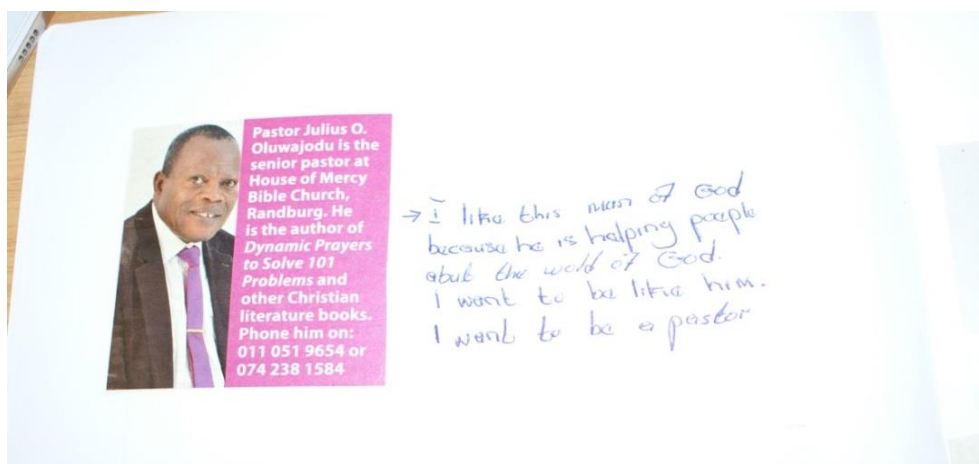 Pastor Julius O.
Oluwajodu is the
senior pastor at
House of Mercy
Bible Church,
Randburg. He
is the author of
Dynamic Prayers
to Solve 101
Problems and
other Christian
literature books.
Phone him on:
011 051 9654 or
074 238 1584
→ I like this man of God
because he is helping people
abut the wold of God.
I want to be like him.
I want to be a pastor